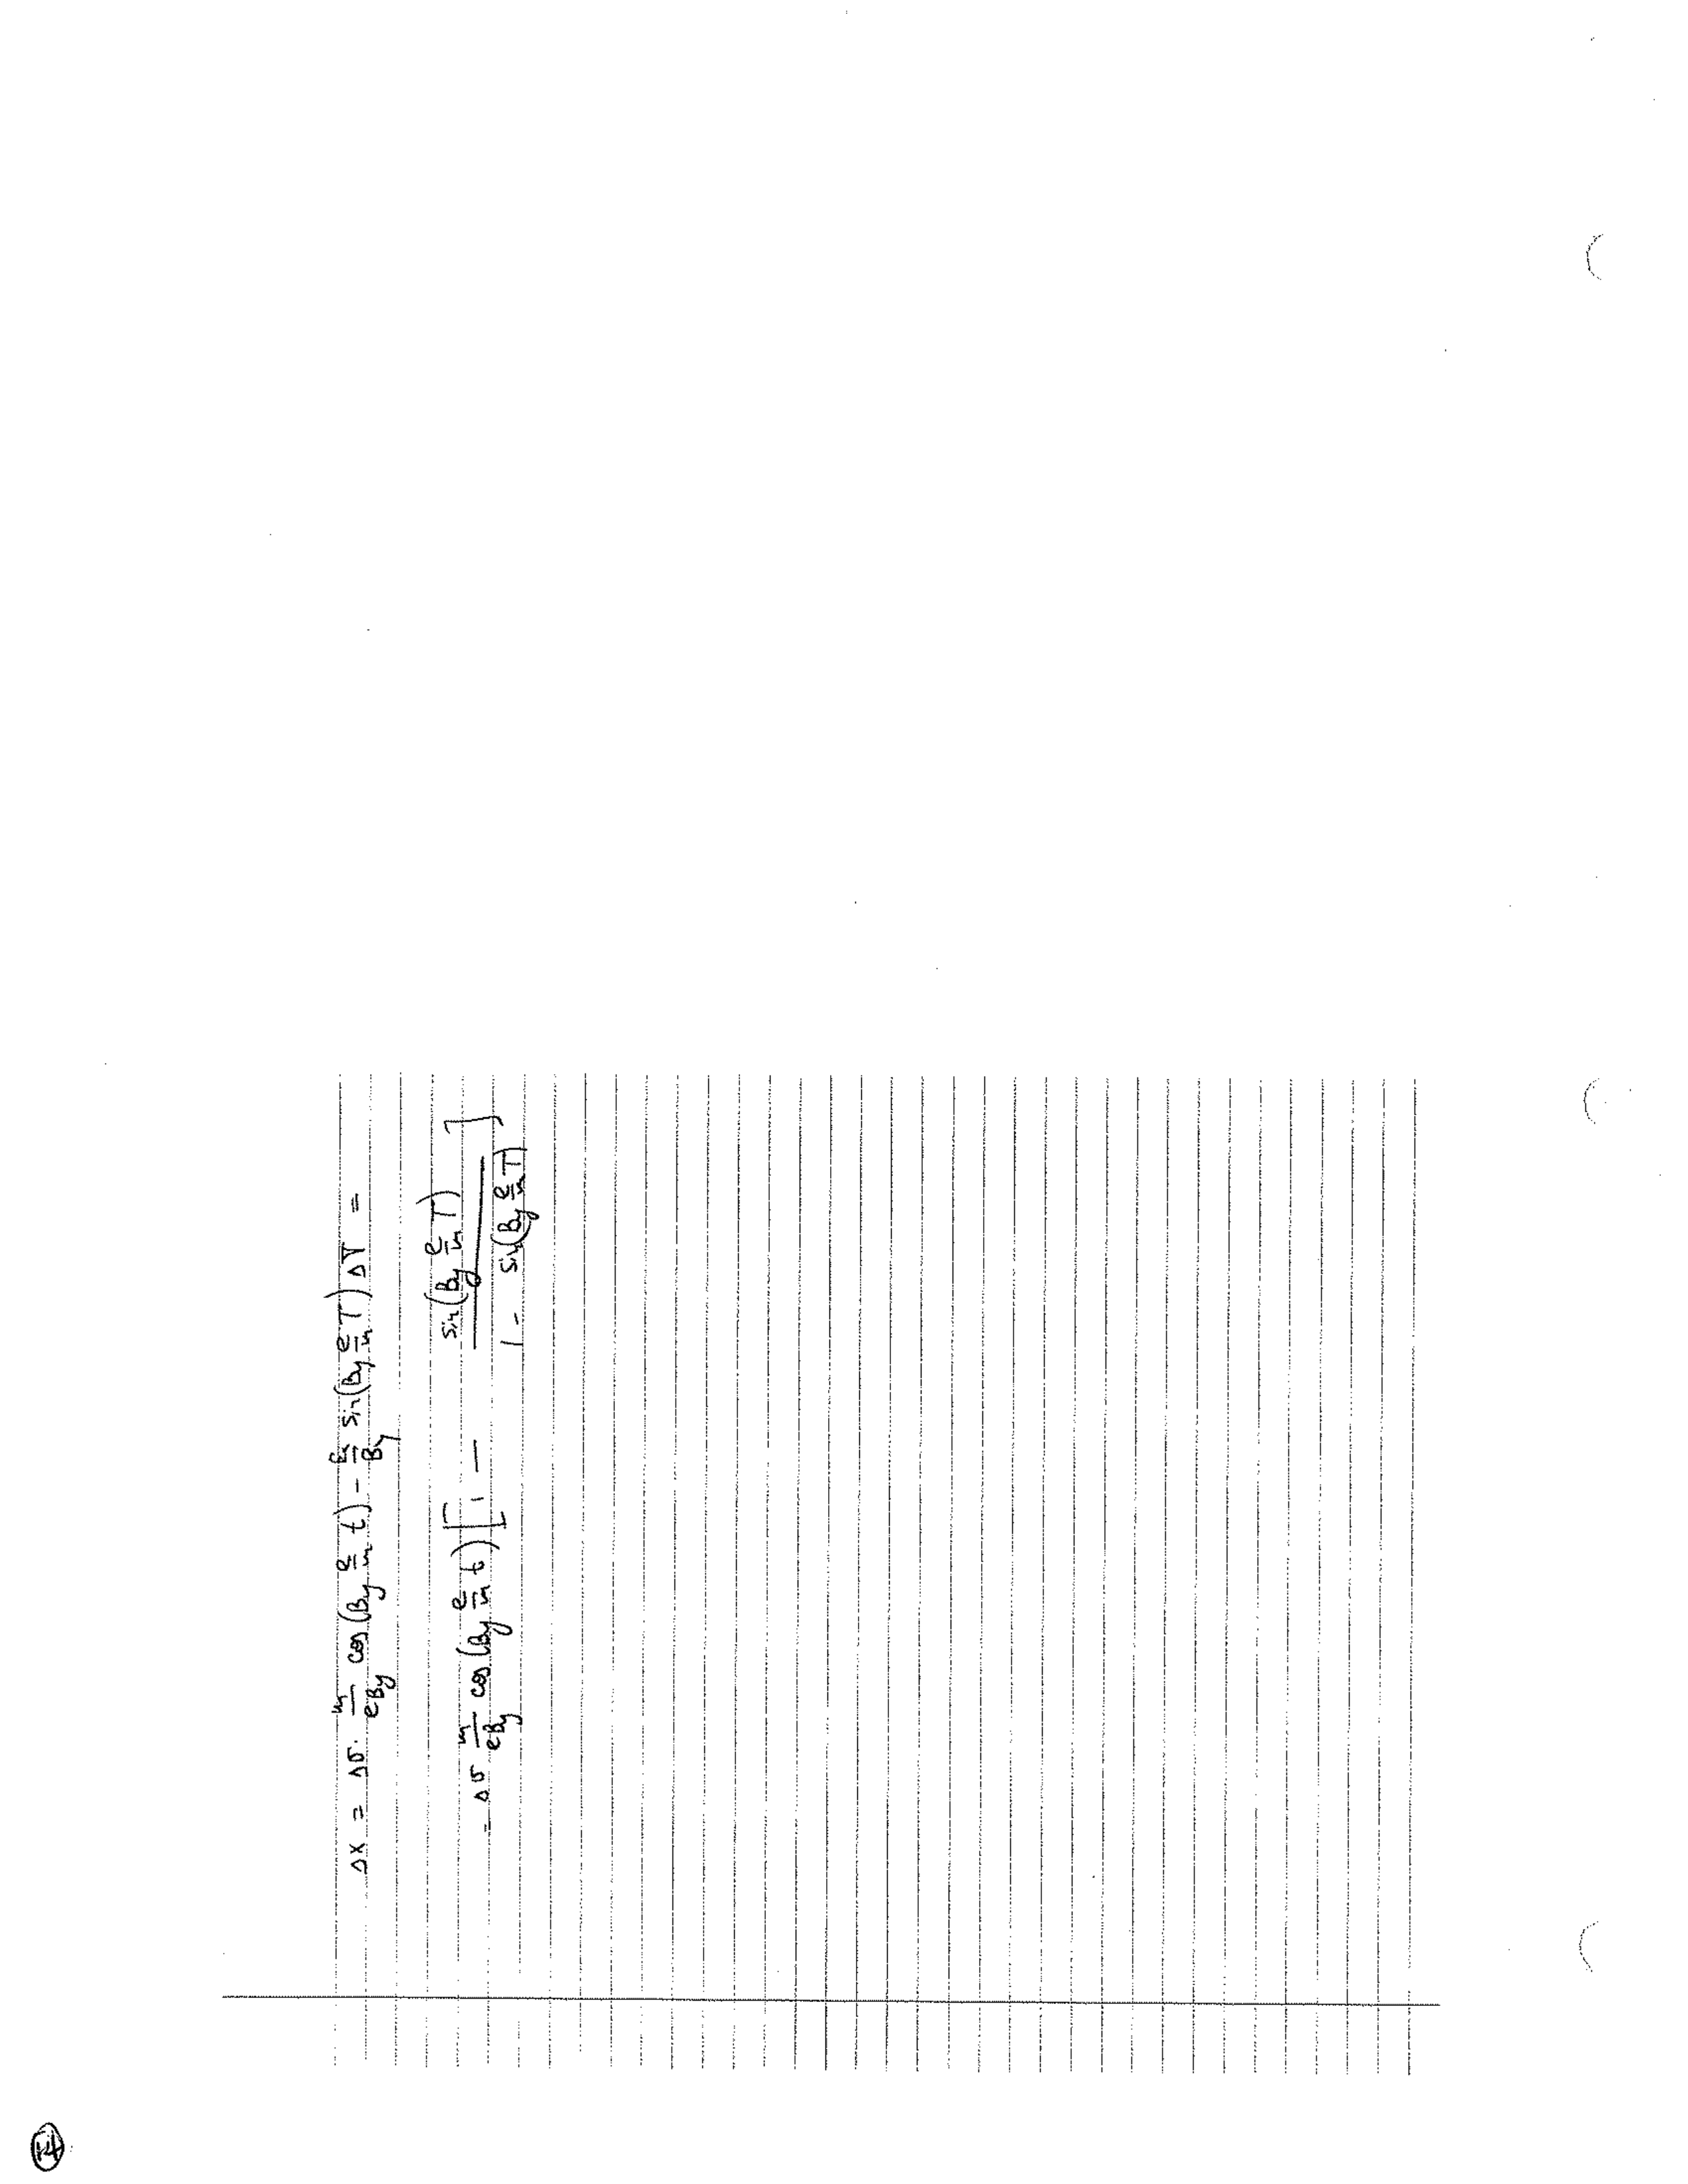 Δx = Δv · m/(eBy) cos(By e/m t) - Ex/By sin(By e/m T) ΔT =
= Δv m/(eBy) cos(By e/m t) [1 - sin(By e/m T) / (1 - sin(By e/m T))]
14